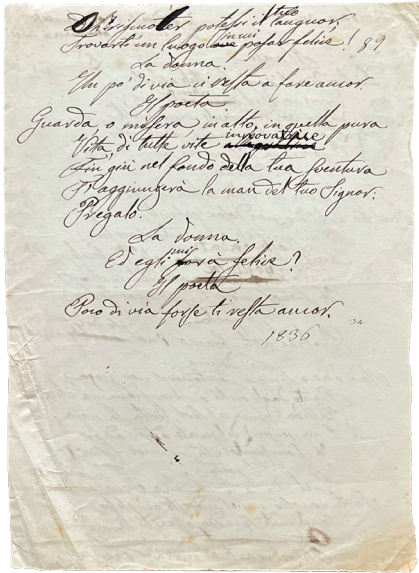 potessi il tuo languor,
Trovarti un luogo ove posar felice! 89
La donna.
Un po' di via ci resta a fare ancor.
Il poeta
Guarda o misera in alto, in quella pura
Vita di tutte vite innovatrice
Fin giù nel fondo della tua sventura
T'aggiungerà la man del tuo Signor.
Pregalo.
La donna.
Ed egli mi farà felice?
Il poeta
Poco di via forse ti resta ancor.
1836